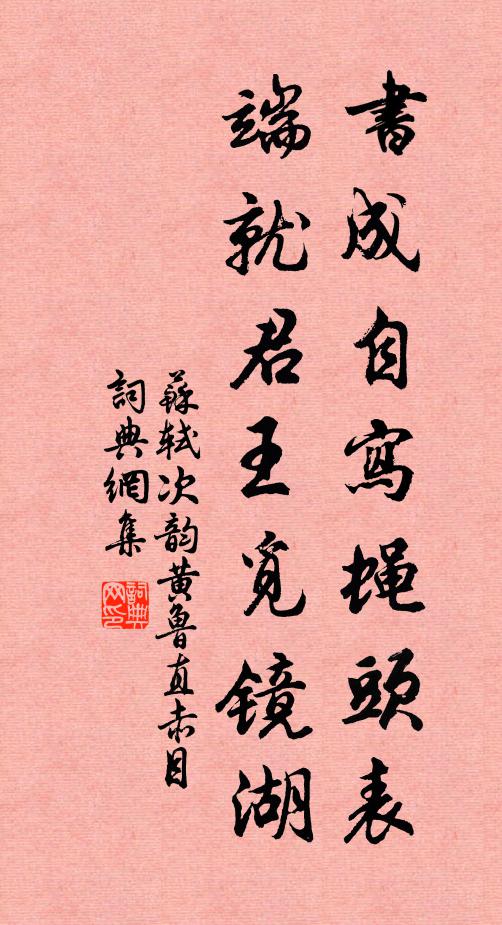 書成自寫蝇頭表
端就君王覓鏡湖
蘇轼次韵黄魯直赤目
詞典網集
詞典网印